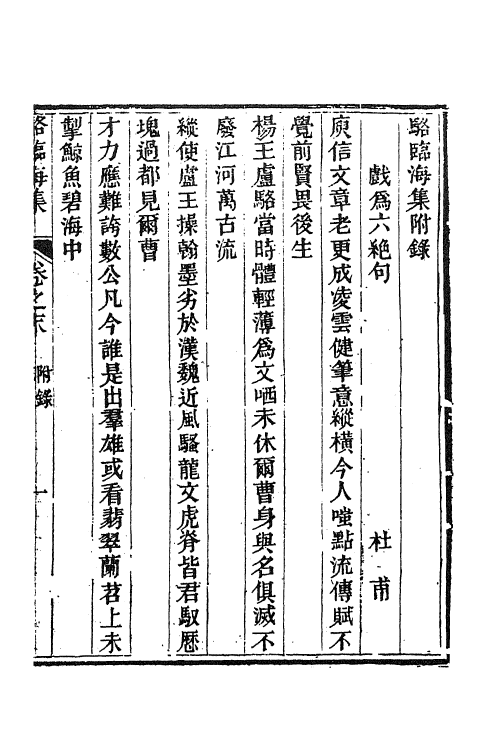 駱臨海集附錄
戲爲六絶句
杜甫
庾信文章老更成凌雲健筆意縱橫今人嗤點流傳賦不
覺前賢畏後生
楊王盧駱當時體輕薄爲文哂未休爾曹身與名俱滅不
廢江河萬古流
縱使盧王操翰墨劣於漢魏近風騷龍文虎脊皆君馭歷
塊過都見爾曹
才力應難誇數公凡今誰是出羣雄或看翡翠蘭苕上未
掣鯨魚碧海中
駱臨海集
卷之末
附錄
一